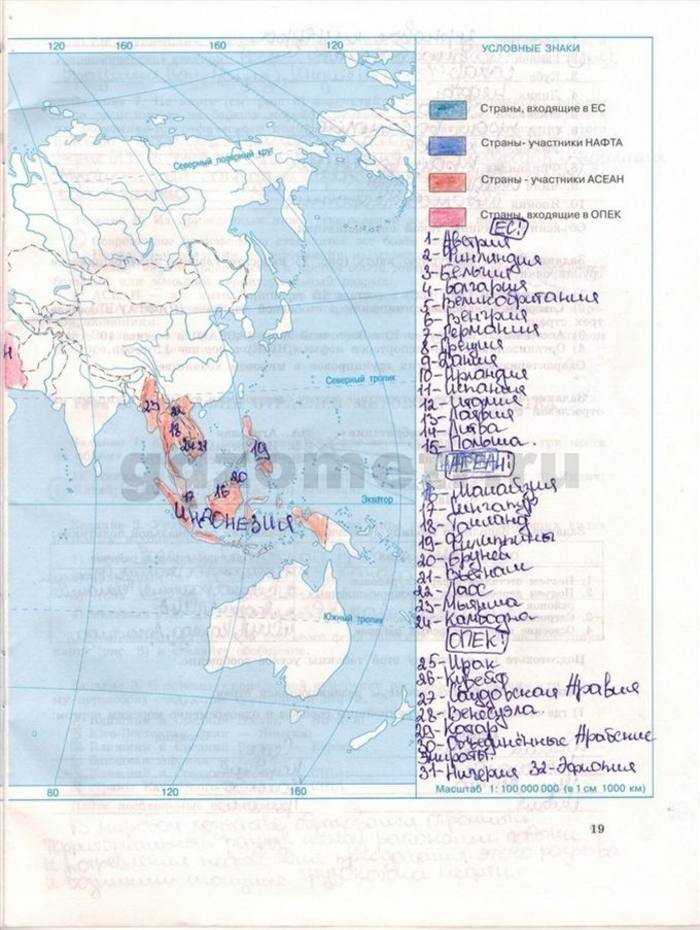 120 160 160 120
УСЛОВНЫЕ ЗНАКИ
Страны, входящие в ЕС
Страны- участники НАФТА
Страны - участники АСЕАН
Страны, входящие в ОПЕК
Северный полярный круг
Северный тропик
Экватор
Южный тропик
23
22
18
24 21
19
20
16
17
ИНДОНЕЗИЯ
Н
ЕС!
1-Австрия
2-Финляндия
3-Бельгия
4-Болгария
5-Великобритания
6-Венгрия
7-Германия
8-Греция
9-Дания
10-Ирландия
11-Испания
12-Италия
13-Латвия
14-Литва
15-Польша
АСЕАН!
16-Малайзия
17-Сингапур
18-Таиланд
19-Филиппины
20-Бруней
21-Вьетнам
22-Лаос
23-Мьянма
24-Камбоджа
ОПЕК!
25-Ирак
26-Кувейт
27-Саудовская Аравия
28-Венесуэла
29-Катар
30-Объединённые Арабские
Эмираты.
31-Нигерия 32-Эфиопия
Масштаб 1: 100 000 000 (в 1 см 1000 км)
80 120 160
19
gdzometr.ru